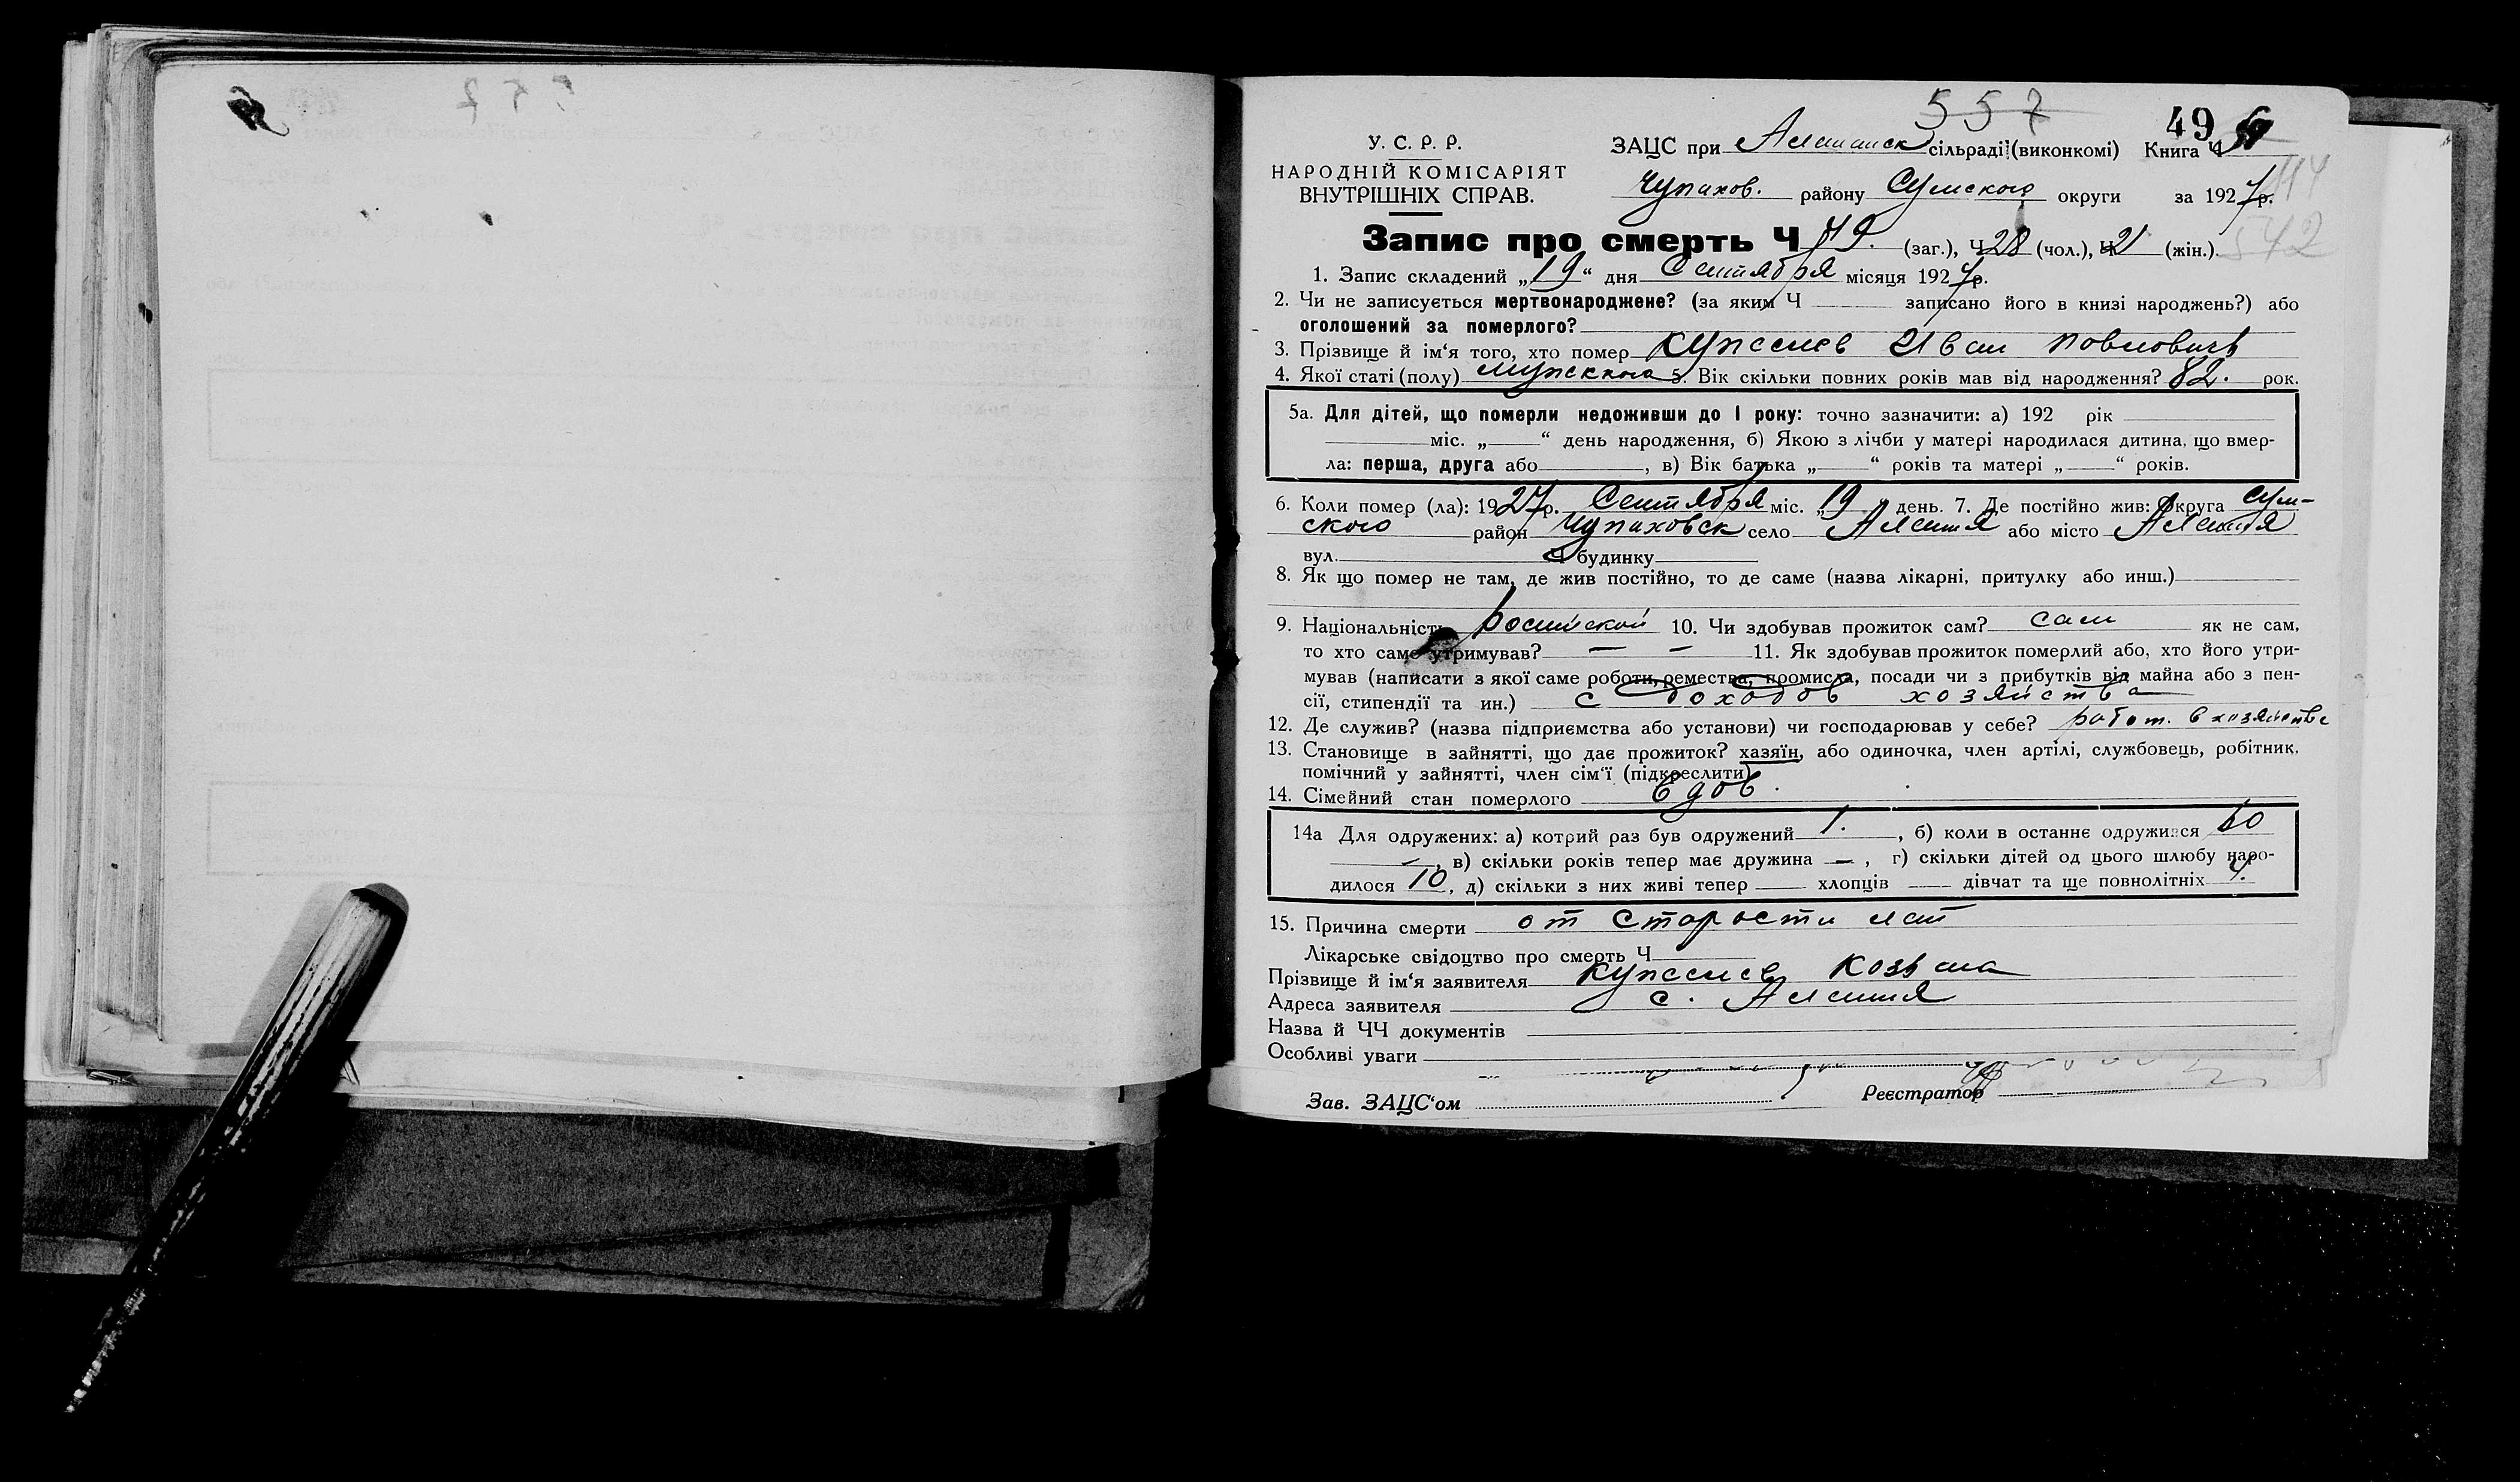 557
49
У. С. Р. Р.
НАРОДНІЙ КОМІСАРІЯТ
ВНУТРІШНІХ СПРАВ.
ЗАЦС при Алешанск сільраді (виконкомі) Книга Ч
Чупахов. району Сумского округи за 1927 р.
114
542
Запис про смерть Ч 49. (заг.), Ч 28 (чол.), Ч 21 (жін.).
1. Запис складений „19“ дня Сентября місяця 1927 р.
2. Чи не записується мертвонароджене? (за яким Ч записано його в книзі народжень?) або
оголошений за померлого?
3. Прізвище й ім‘я того, хто помер Кужелев Иван Повлович
4. Якої статі (полу) мужского 5. Вік скільки повних років мав від народження? 82. рок.
5а. Для дітей, що померли недоживши до 1 року: точно зазначити: а) 192 рік
міс. „ “ день народження, б) Якою з лічби у матері народилася дитина, що вмер-
ла: перша, друга або , в) Вік батька „ “ років та матері „ “ років.
6. Коли помер (ла): 1927 р. Сентября міс. „19“ день. 7. Де постійно жив: Округа Сум-
ского район Чупаховск село Алешня або місто Алешня
вул. Ч будинку
8. Як що помер не там, де жив постійно, то де саме (назва лікарні, притулку або инш.)
9. Національність Росийской 10. Чи здобував прожиток сам? сам як не сам,
то хто саме утримував? — — 11. Як здобував прожиток померлий або, хто його утри-
мував (написати з якої саме роботи, ремества, промисла, посади чи з прибутків від майна або з пен-
сії, стипендії та ин.) с доходов хозяйства
12. Де служив? (назва підприємства або установи) чи господарював у себе? работ. в хозяйстве
13. Становище в зайнятті, що дає прожиток? хазяїн, або одиночка, член артілі, службовець, робітник,
помічний у зайнятті, член сім‘ї (підкреслити)
14. Сімейний стан померлого вдов.
14а Для одружених: а) котрий раз був одружений 1. , б) коли в останнє одружився
— , в) скільки років тепер має дружина — , г) скільки дітей од цього шлюбу наро-
дилося 10, д) скільки з них живі тепер хлопців дівчат та ще повнолітніх 4.
15. Причина смерти от старости лет
Лікарське свідоцтво про смерть Ч
Прізвище й ім‘я заявителя Кужелев Козьма
Адреса заявителя с. Алешня
Назва й ЧЧ документів
Особливі уваги
Зав. ЗАЦС‘ом Реєстратор